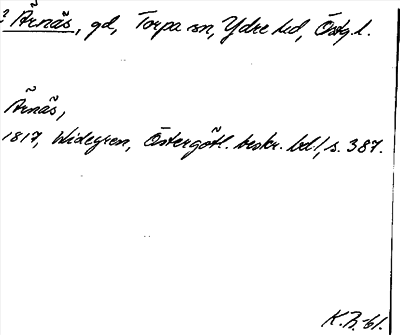 ? Ärnäs, gd, Torpa sn, Ydre hd, Östg.l.
Ärnäs,
1817, Widegren, Östergötl. beskr. bd 1, s. 387.
K.B.-61.